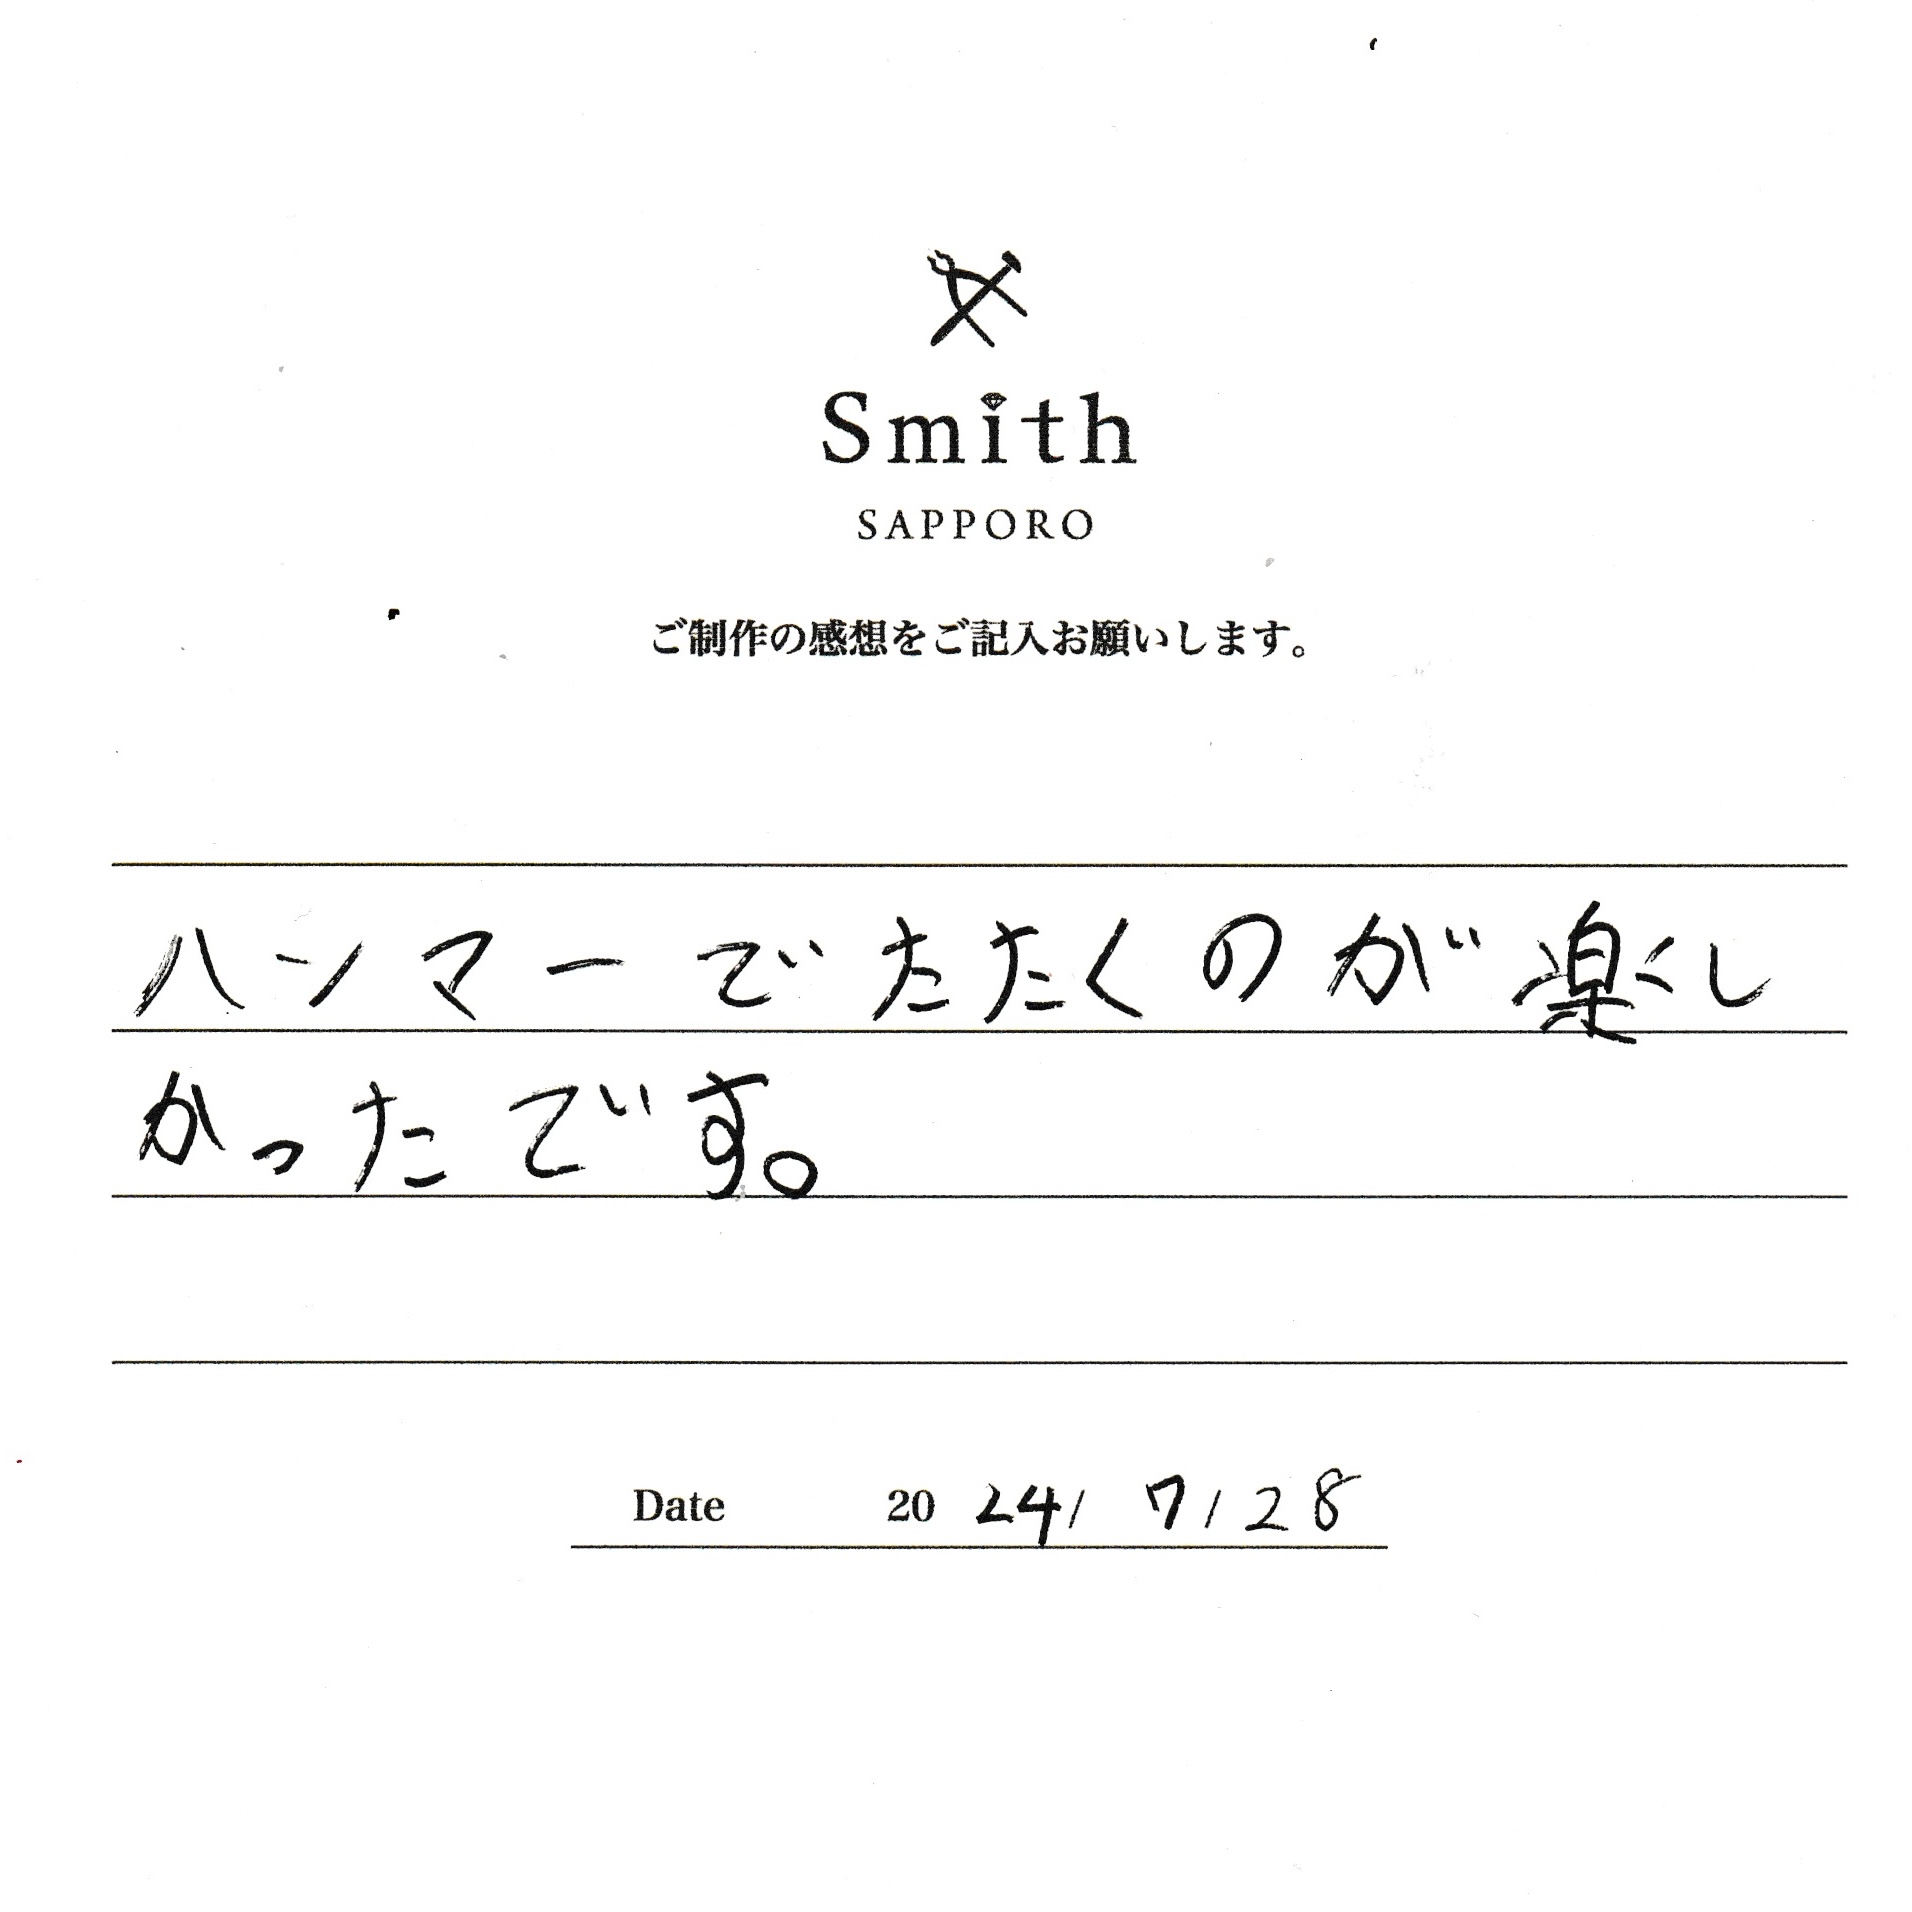 Smith
SAPPORO
ご制作の感想をご記入お願いします。
ハンマーでたたくのが楽し
かったです。
Date 2024/ 7/28